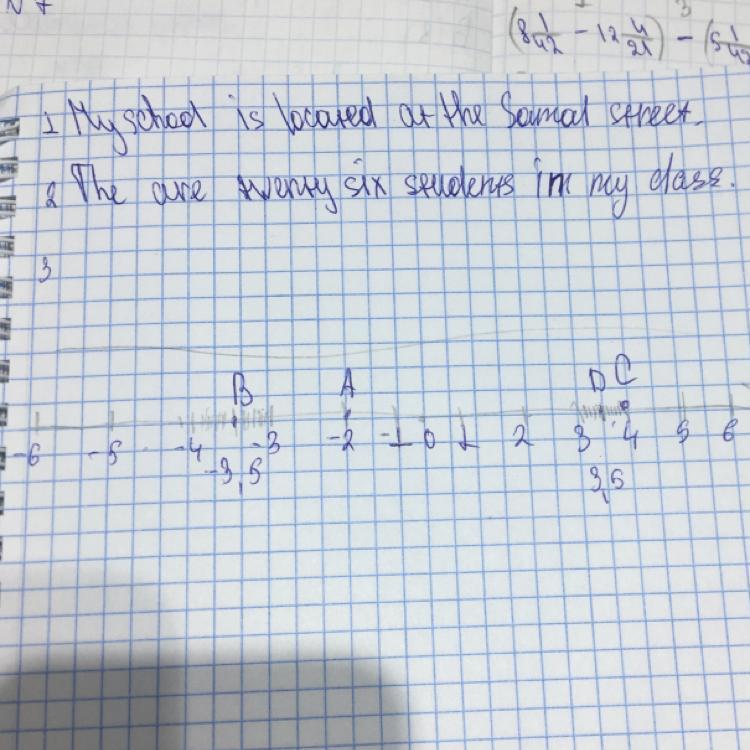 (8 1/42 - 12 4/21) - (5 1/42
1 My school is located at the Samal street.
2 The are twenty six students in my class.
3
B A D C
-6 -5 -4 -3 -2 -1 0 1 2 3 4 5 6
-3,5 3,5